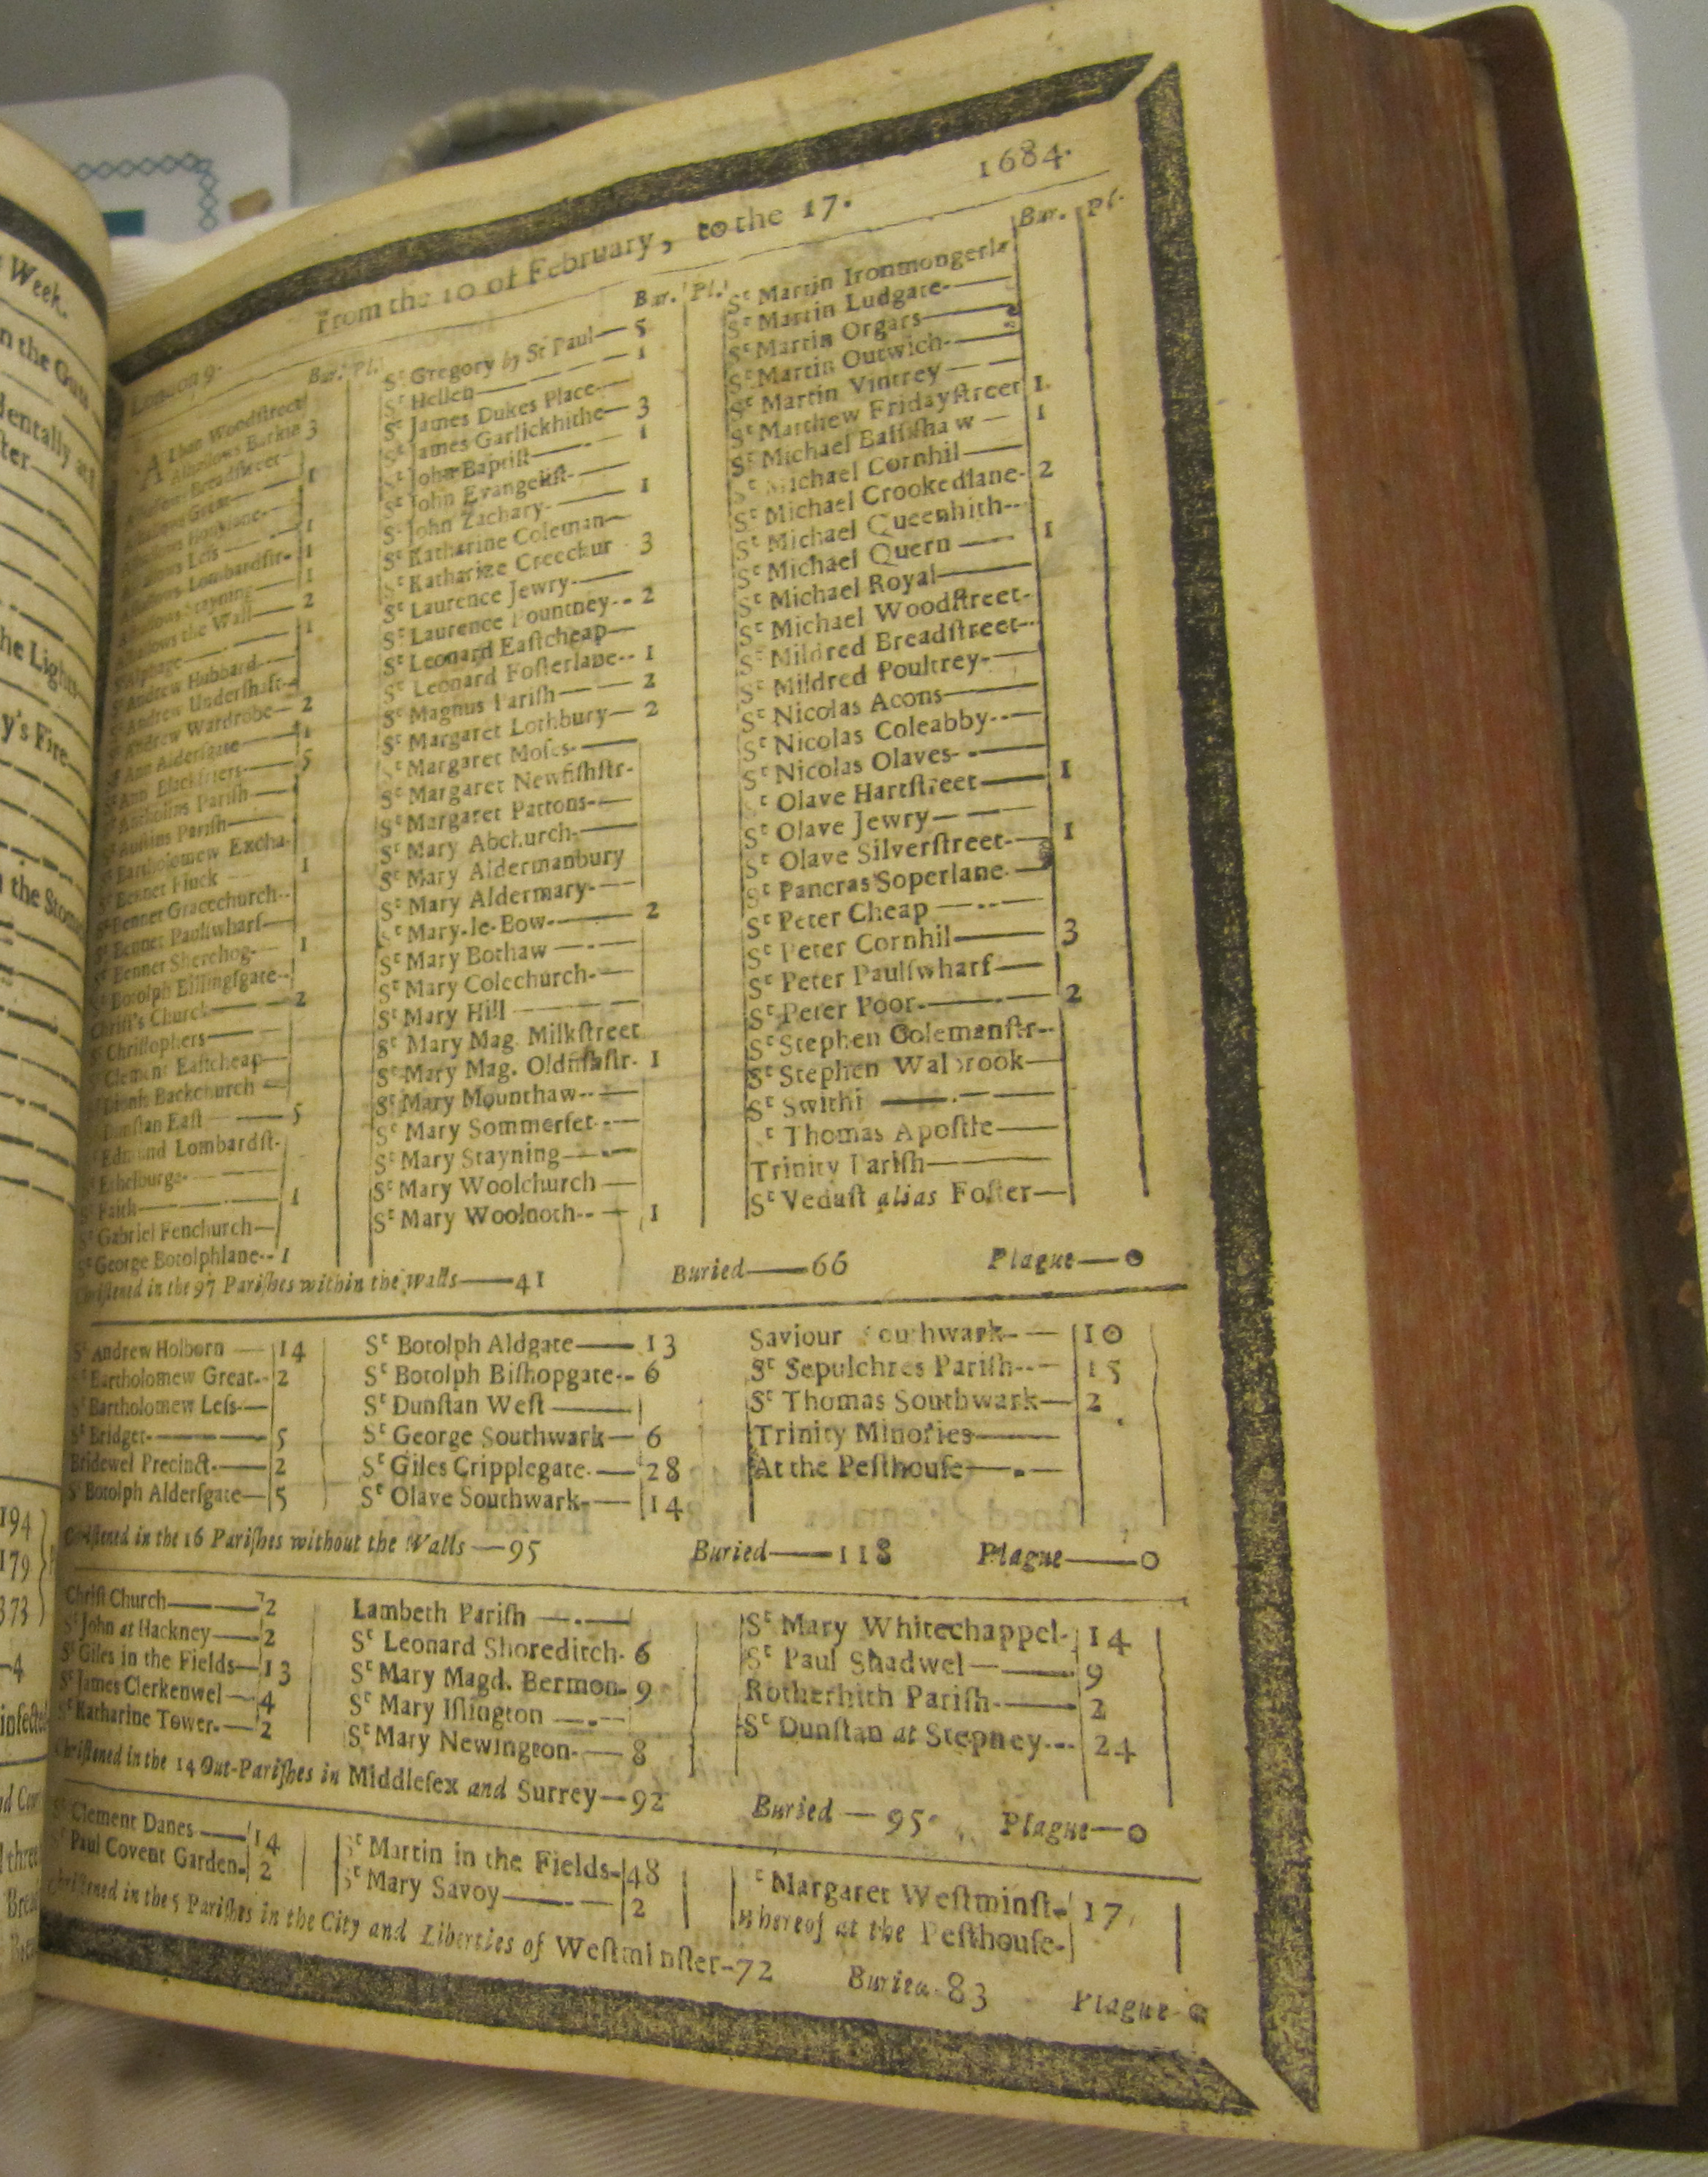 Week.
n the Guts
dentally at
ster
he Lights
y's Fire
n the Stom
194
179
373
—4
infected
From the 10 of February, to the 17. 1684.
London 9.
Bur. Pl.
ALban Woodstreet
Alhallows Barkin 3
Alhallows Breadstreet
Alhallows Great 1
Alhallows Honylane
Alhallows Less 1
Alhallows Lombardstr. 1
Alhallows Stayning 1
Alhallows the Wall 2
St Alphage 1
St Andrew Hubbard
St Andrew Undershaft
St Andrew Wardrobe 2
St Ann Aldersgate 1
St Ann Blackfriers 5
St Antholins Parish
St Austins Parish
St Bartholomew Excha.
St Bennet Finck 1
St Bennet Gracechurch
St Bennet Paulswharf
St Bennet Sherehog 1
St Botolph Billingsgate
Christ's Church 2
St Christophers
St Clement Eastcheap
St Dionis Backchurch
St Dunstan East 5
St Edmund Lombardst.
St Ethelburga
St Faith 1
St Gabriel Fenchurch
St George Botolphlane 1
Bur. Pl.
St Gregory by St Paul 5
St Hellen 1
St James Dukes Place
St James Garlickhithe 3
St John Baptist 1
St John Evangelist
St John Zachary 1
St Katharine Coleman
St Katharine Creechur 3
St Laurence Jewry
St Laurence Pountney 2
St Leonard Eastcheap
St Leonard Fosterlane 1
St Magnus Parish 2
St Margaret Lothbury 2
St Margaret Moses
St Margaret Newfishstr.
St Margaret Pattons
St Mary Abchurch
St Mary Aldermanbury
St Mary Aldermary
St Mary-le-Bow 2
St Mary Bothaw
St Mary Colechurch
St Mary Hill
St Mary Mag. Milkstreet
St Mary Mag. Oldfishstr. 1
St Mary Mounthaw
St Mary Sommerset
St Mary Stayning
St Mary Woolchurch
St Mary Woolnoth 1
Bur. Pl.
St Martin Ironmongerla
St Martin Ludgate
St Martin Orgars
St Martin Outwich
St Martin Vintrey
St Matthew Fridaystreet 1
St Michael Bassishaw 1
St Michael Cornhil
St Michael Crookedlane 2
St Michael Queenhith
St Michael Quern 1
St Michael Royal
St Michael Woodstreet
St Mildred Breadstreet
St Mildred Poultrey
St Nicolas Acons
St Nicolas Coleabby
St Nicolas Olaves
St Olave Hartstreet 1
St Olave Jewry
St Olave Silverstreet 1
St Pancras Soperlane
St Peter Cheap
St Peter Cornhil 3
St Peter Paulswharf
St Peter Poor 2
St Stephen Colemanstr.
St Stephen Walbrook
St Swithi
St Thomas Apostle
Trinity Parish
St Vedast alias Foster
Christened in the 97 Parishes within the walls—41 Buried—66 Plague—0
St Andrew Holborn 14
St Bartholomew Great 2
St Bartholomew Less
St Bridget 5
Bridewel Precinct 2
St Botolph Aldersgate 5
St Botolph Aldgate 13
St Botolph Bishopgate 6
St Dunstan West
St George Southwark 6
St Giles Cripplegate 28
St Olave Southwark 14
Saviour Southwark 10
St Sepulchres Parish 15
St Thomas Southwark 2
Trinity Minories
At the Pesthouse
Christened in the 16 Parishes without the Walls—95 Buried—118 Plague—0
Christ Church 2
St John at Hackney 2
St Giles in the Fields 13
St James Clerkenwel 4
St Katharine Tower 2
Lambeth Parish
St Leonard Shoreditch 6
St Mary Magd. Bermon. 9
St Mary Islington
St Mary Newington 8
St Mary Whitechappel 14
St Paul Shadwel 9
Rotherhith Parish 2
St Dunstan at Stepney 24
Christened in the 14 Out-Parishes in Middlesex and Surrey—92 Buried—95 Plague—0
St Clement Danes 14
St Paul Covent Garden 2
St Martin in the Fields 48
St Mary Savoy 2
St Margaret Westminst. 17
Whereof at the Pesthouse
Christened in the 5 Parishes in the City and Liberties of Westminster-72 Buried-83 Plague-0